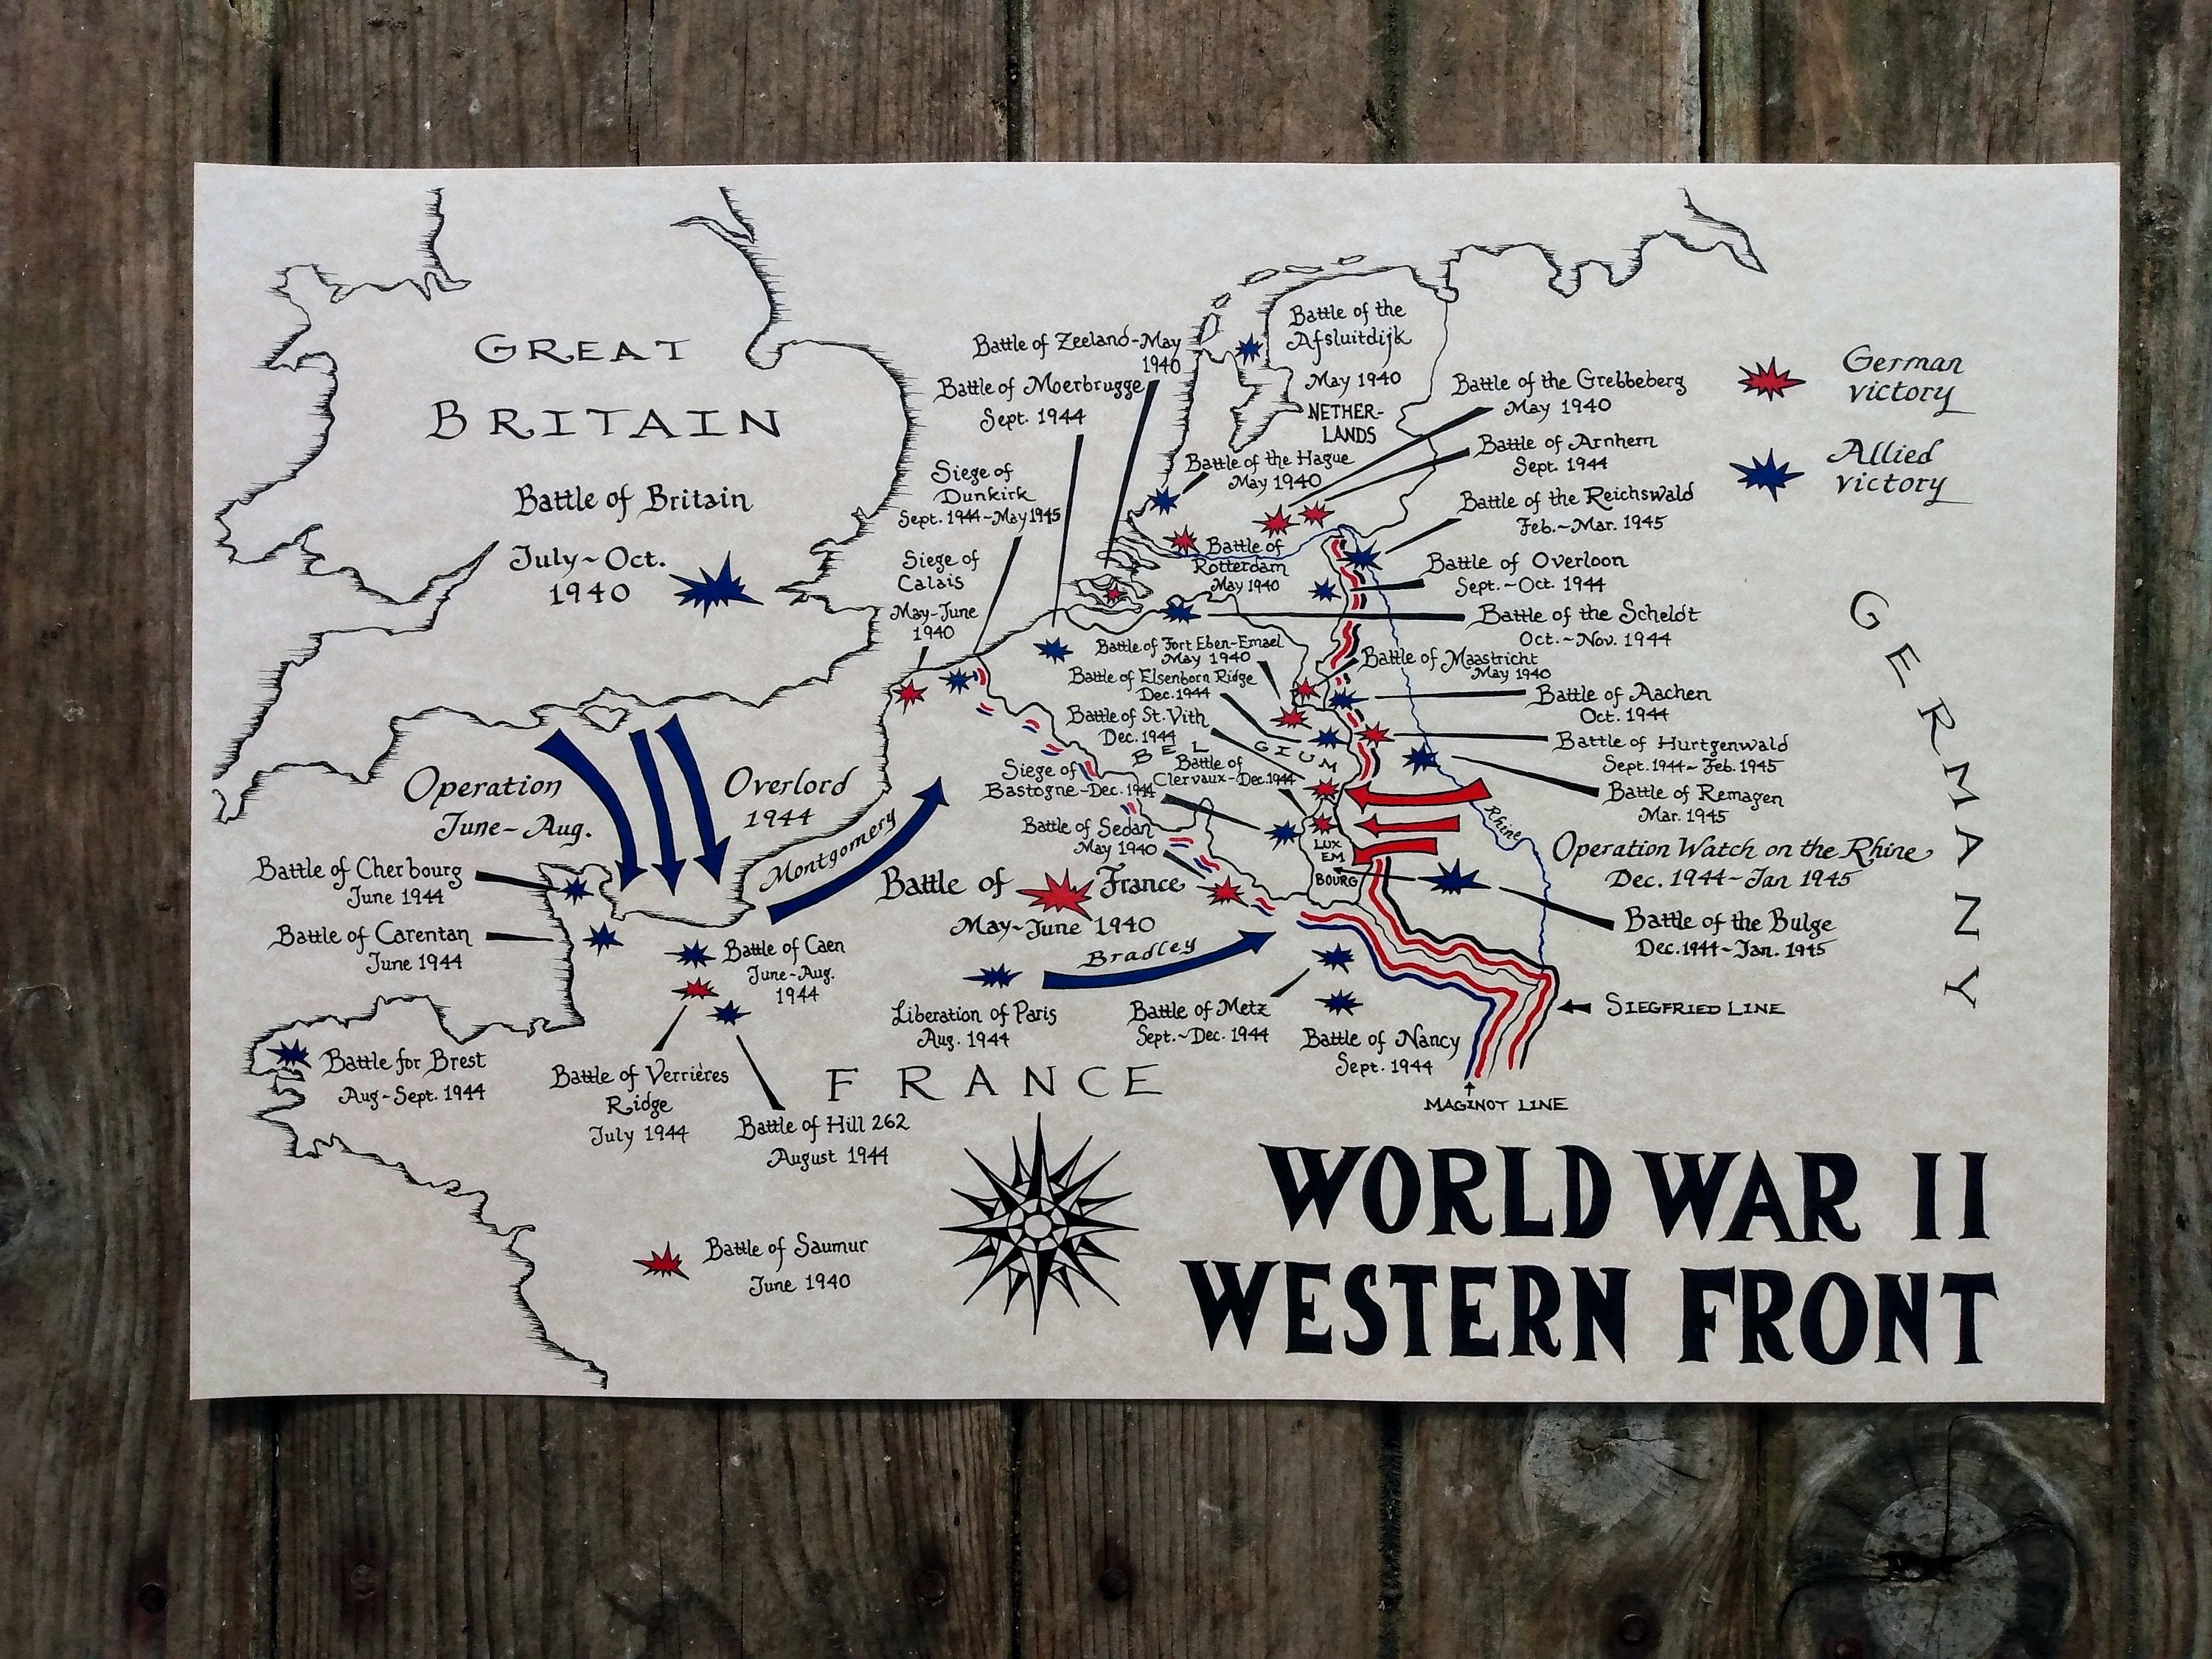 GREAT
BRITAIN
Battle of Britain
July~Oct.
1940
Battle of Zeeland-May
1940
Battle of Moerbrugge
Sept. 1944
Siege of
Dunkirk
Sept. 1944~May 1945
Siege of
Calais
May-June
1940
Battle of the
Afsluitdijk
May 1940
NETHER-
LANDS
Battle of the Hague
May 1940
Battle of
Rotterdam
May 1940
Battle of the Grebbeberg
May 1940
Battle of Arnhem
Sept. 1944
Battle of the Reichswald
Feb.~Mar. 1945
Battle of Overloon
Sept.~Oct. 1944
Battle of the Scheldt
Oct.~Nov. 1944
Battle of Maastricht
May 1940
Battle of Aachen
Oct. 1944
Battle of Hurtgenwald
Sept. 1944~Feb. 1945
Battle of Remagen
Mar. 1945
Rhine
Operation Watch on the Rhine
Dec. 1944~Jan 1945
Battle of the Bulge
Dec. 1944~Jan. 1945
SIEGFRIED LINE
MAGINOT LINE
German
victory
Allied
victory
GERMANY
Battle of Fort Eben-Emael
May 1940
Battle of Elsenborn Ridge
Dec. 1944
Battle of St. Vith
Dec. 1944
BELGIUM
Battle of
Clervaux-Dec. 1944
Siege of
Bastogne-Dec. 1944
Battle of Sedan
May 1940
LUX
EM
BOURG
Operation
June~Aug.
Overlord
1944
Montgomery
Battle of France
May~June 1940
Bradley
Battle of Cherbourg
June 1944
Battle of Carentan
June 1944
Battle of Caen
June-Aug.
1944
Liberation of Paris
Aug. 1944
Battle of Metz
Sept.~Dec. 1944
Battle of Nancy
Sept. 1944
Battle for Brest
Aug~Sept. 1944
Battle of Verrières
Ridge
July 1944
Battle of Hill 262
August 1944
FRANCE
Battle of Saumur
June 1940
WORLD WAR II
WESTERN FRONT